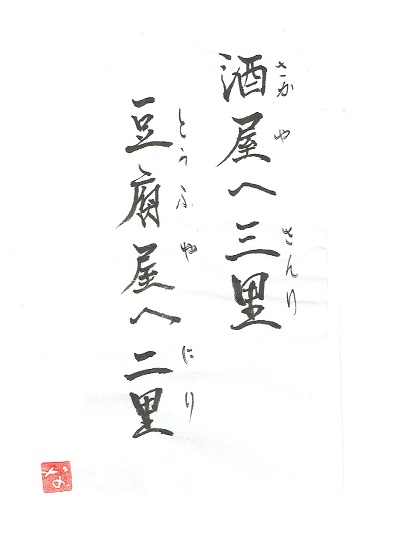 酒屋へ三里
さかや さんり
豆腐屋へ二里
とうふや にり
な